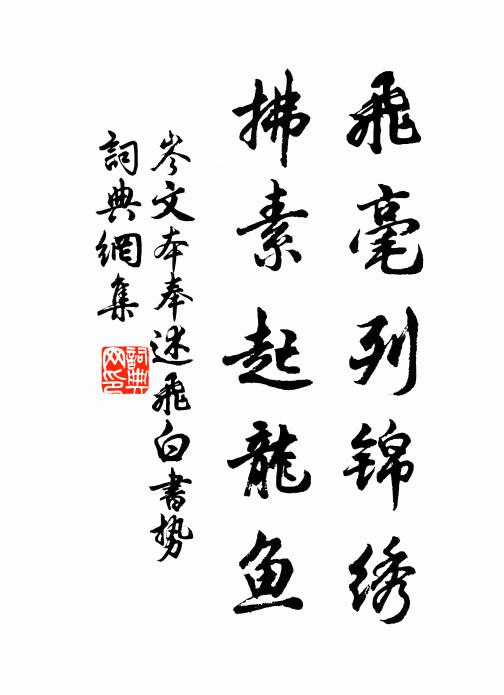 飛毫列锦绣
拂素起龍魚
岑文本奉述飛白書势
詞典網集
詞典网印